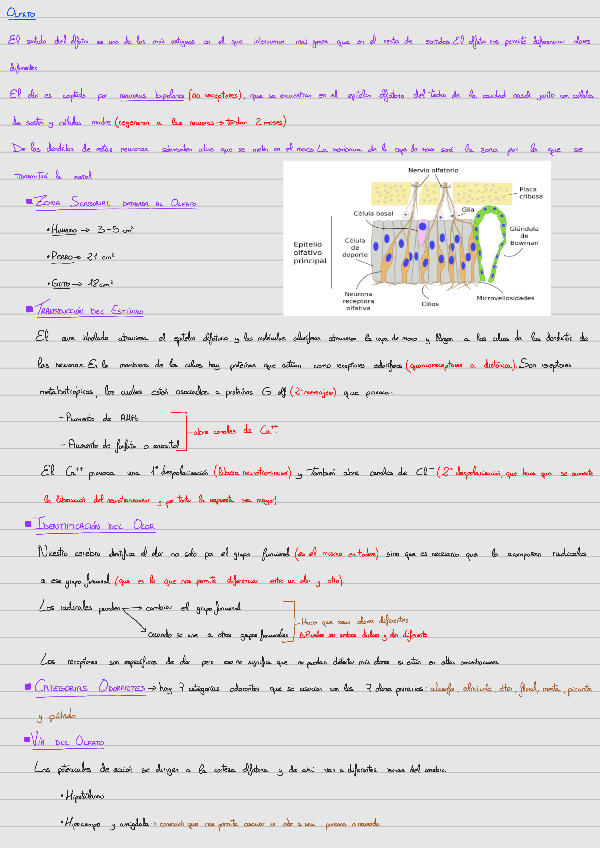 OLFATO
El sentido del olfato es uno de los más antiguos en el que intervienen más genes que en el resto de sentidos. El olfato nos permite diferenciar olores
diferentes.
El olor es captado por neuronas bipolares (no receptores), que se encuentran en el epitelio olfatorio del techo de la cavidad nasal junto con células
de sostén y células madre (regeneran a las neuronas → tardan 2 meses)
De las dendritas de estas neuronas sobresalen cilios que se meten en el moco. La membrana de la capa de moco será la zona por la que se
transmitirá la señal
ZONA SENSORIAL DEDICADA AL OLFATO
• HUMANO → 3-5 cm²
• PERRO → 21 cm²
• GATO → 18 cm²
Nervio olfatorio
Placa cribosa
Glia
Célula basal
Glándula de Bowman
Epitelio olfativo principal
Célula de doporte
Neurona receptora olfativa
Cilios
Microvellosidades
TRANSDUCCIÓN DEL ESTÍMULO
El aire inhalado atraviesa el epitelio olfatorio y las moléculas odoríferas atraviesan la capa de moco y llegan a los cilios de las dendritas de
las neuronas. En la membrana de los cilios hay proteínas que actúan como receptores odoríferos (quimiorreceptores a distancia). Son receptores
metabotrópicos, los cuales están asociados a proteínas G olf (2º mensajero) que provoca:
- Aumento de AMPc
- Aumento de fosfato o inositol
- abre canales de Ca⁺⁺
El Ca⁺⁺ provoca una 1ª despolarización (libera neurotransmisor) y también abre canales de Cl⁻ (2ª despolarización, que hace que se aumente
la liberación del neurotransmisor y por tanto la respuesta sea mayor)
IDENTIFICACIÓN DEL OLOR
Nuestro cerebro identifica el olor no solo por el grupo funcional (es el mismo en todos) sino que es necesario que lo acompañen radicales
a ese grupo funcional (que es lo que nos permite diferenciar entre un olor y otro).
Los radicales pueden → cambiar el grupo funcional
cuando se une a otros grupos funcionales
- Hace que sean olores diferentes
Pueden ser ambos dulces y olor diferente
Los receptores son específicos de olor pero eso no significa que no puedan detectar más olores si están en altas concentraciones
CATEGORÍAS ODORANTES → hay 7 categorías odorantes que se asocian con los 7 olores primarios: alcanfor, almizcle, éter, floral, menta, picante
y pútrido
VÍA DEL OLFATO
Los potenciales de acción se dirigen a la corteza olfatoria y de ahí van a diferentes zonas del cerebro.
• Hipotálamo
• Hipocampo y amígdala → conexión que nos permite asociar un olor a una persona o recuerdo